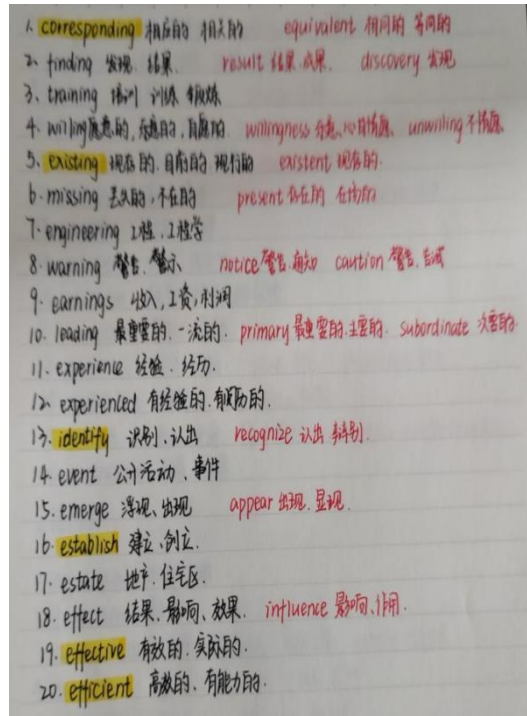 1. corresponding 相应的 相关的 equivalent 相同的 等同的
2. finding 发现. 结果. result 结果.成果. discovery 发现
3. training 培训 训练 锻炼
4. willing愿意的, 乐意的, 自愿的. willingness 乐意、心甘情愿、 unwilling 不情愿
5. existing 现存的. 目前的 现行的 existent 现存的.
6. missing 丢失的,不在的 present 存在的 在场的
7. engineering 工程.工程学
8. warning 警告.警示 notice 警告.通知 caution 警告.告诫
9. earnings 收入,工资,利润
10. leading 最重要的.一流的. primary 最重要的.主要的. subordinate 次要的
11. experience 经验. 经历.
12. experienced 有经验的.有阅历的.
13. identify 识别、认出 recognize 认出 辩别.
14. event 公开活动、事件
15. emerge 浮现、出现 appear 出现.显现.
16. establish 建立、创立.
17. estate 地产.住宅区.
18. effect 结果、影响、效果. influence 影响、作用.
19. effective 有效的.实际的.
20. efficient 高效的、有能力的.